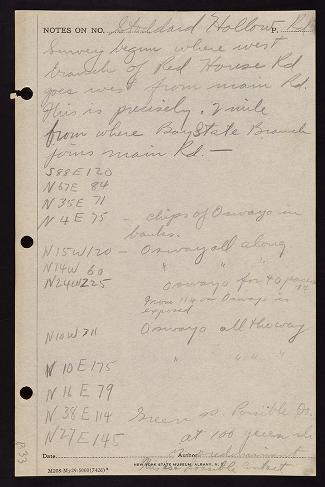 NOTES ON NO. Stoddard Hollow Rd
P.
Survey begun where west
branch of Red House Rd
goes west from main Rd.
This is precisely .2 mile
from where Bay State Branch
joins main Rd. —
S88E 120
N67E 84
N35E 71
N4E 75 - chips of Oswayo in
banks.
N15W 120 - Oswayo all along
N14W 60 " " "
N24W 225 Oswayo for 40 paces
From 114 on Oswayo is
exposed
N10W 211 Oswayo all the way
N10E 175 " " " "
N16E 79
N38E 114 Green ss. Possible Os.
N27E 145 at 100 green sh
Date
Author
M208-My29-5000(7426)*
NEW YORK STATE MUSEUM, ALBANY, N. Y.
possible contact
B33